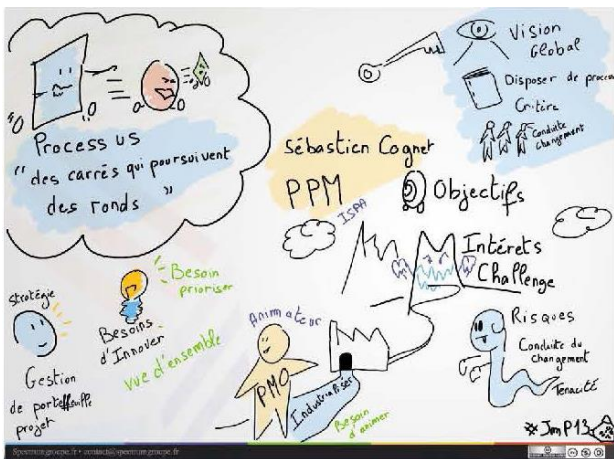 Processus
"des carrés qui poursuivent
des ronds"
Sébastien Cognet
PPM
ISPA
Vision
Global
Disposer de process
Critère
Conduite
changement
Objectifs
Intérets
Challenge
Risques
Conduite du
changement
Tenacité
Stratégie
Gestion
de portefeuille
projet
Besoins
d'Innover
Besoin
prioriser
vue d'ensemble
Animateur
PMO
Industrialiser
Besoin
d'animer
#JmP13
Spectrumgroupe.fr • contact@spectrumgroupe.fr